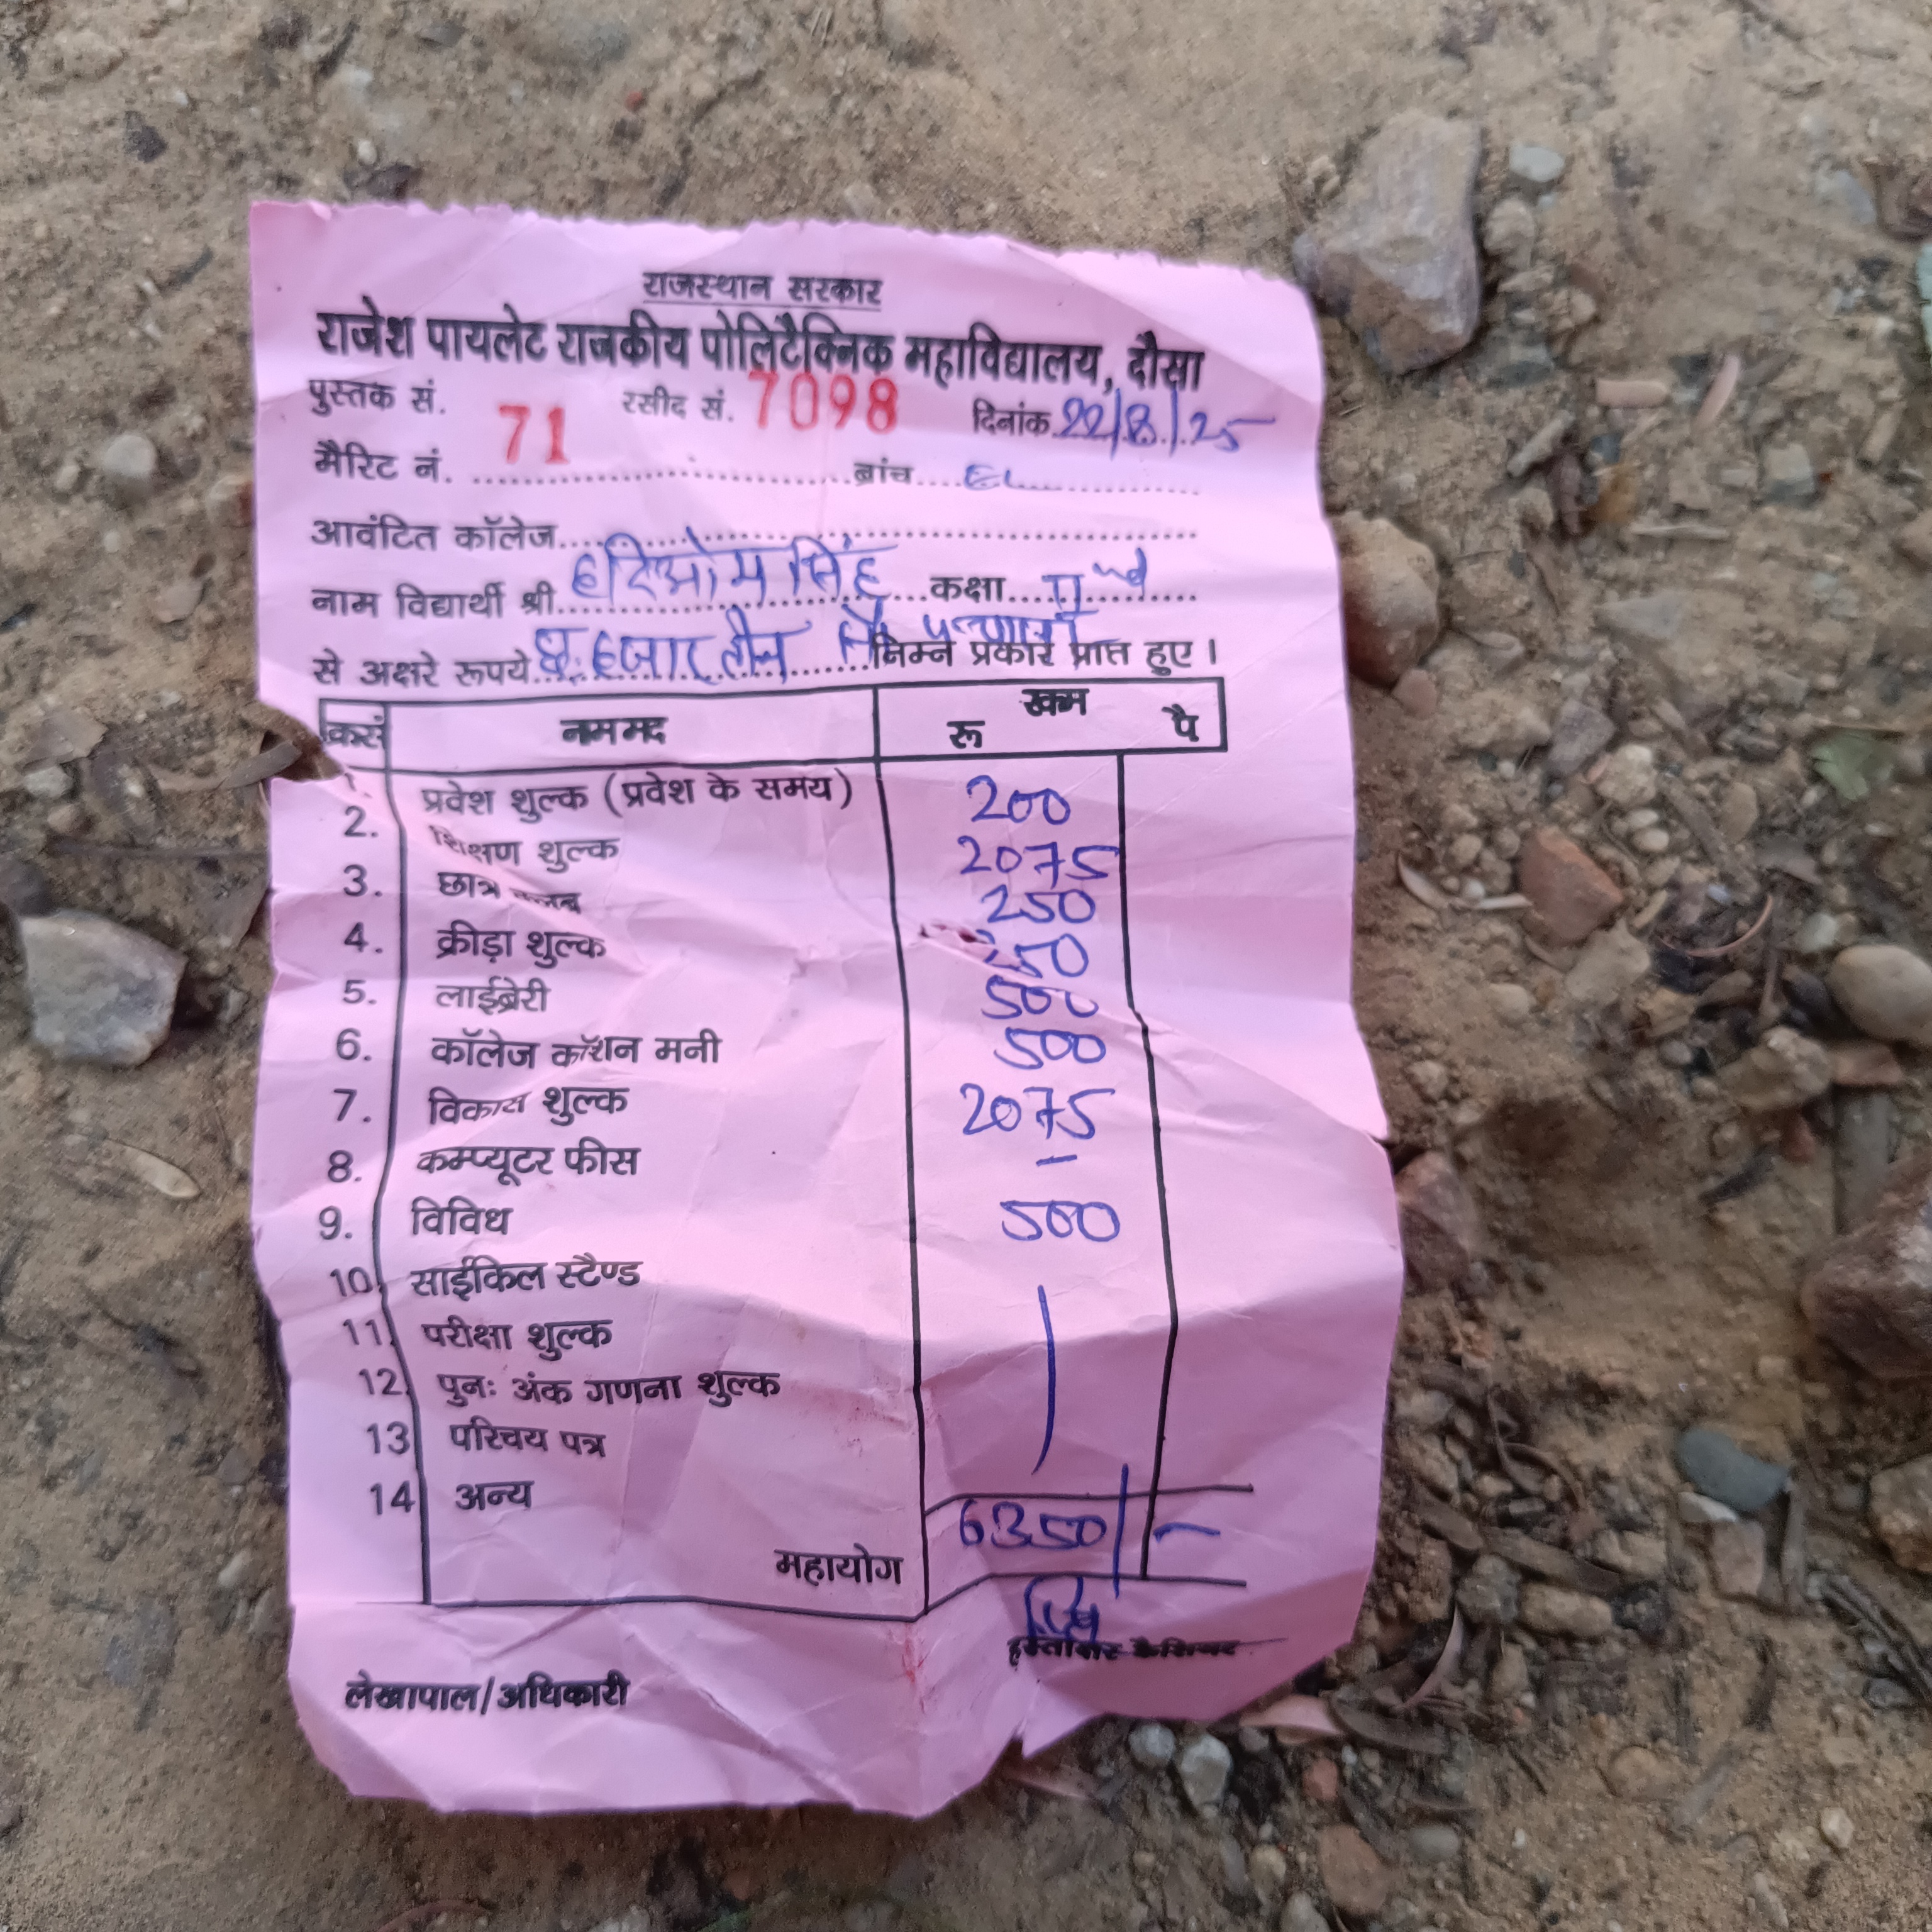 राजस्थान सरकार
राजेश पायलेट राजकीय पोलिटैक्निक महाविद्यालय, दौसा
पुस्तक सं. 71 रसीद सं. 7098 दिनांक 22/8/25
मैरिट नं. ब्रांच EL
आवंटित कॉलेज
नाम विद्यार्थी श्री हरिओम सिंह कक्षा II nd
से अक्षरे रूपये छः हजार तीन सौ पच्चास निम्न प्रकार प्राप्त हुए।
क्रसं नाम मद रकम
रू पै
1. प्रवेश शुल्क (प्रवेश के समय) 200
2. शिक्षण शुल्क 2075
3. छात्र क्लब 250
4. क्रीड़ा शुल्क 250
5. लाईब्रेरी 500
6. कॉलेज कॉशन मनी 500
7. विकास शुल्क 2075
8. कम्प्यूटर फीस –
9. विविध 500
10. साईकिल स्टैण्ड
11. परीक्षा शुल्क
12. पुनः अंक गणना शुल्क
13 परिचय पत्र
14 अन्य
महायोग 6350/–
हस्ताक्षर कैशियर
लेखापाल/अधिकारी